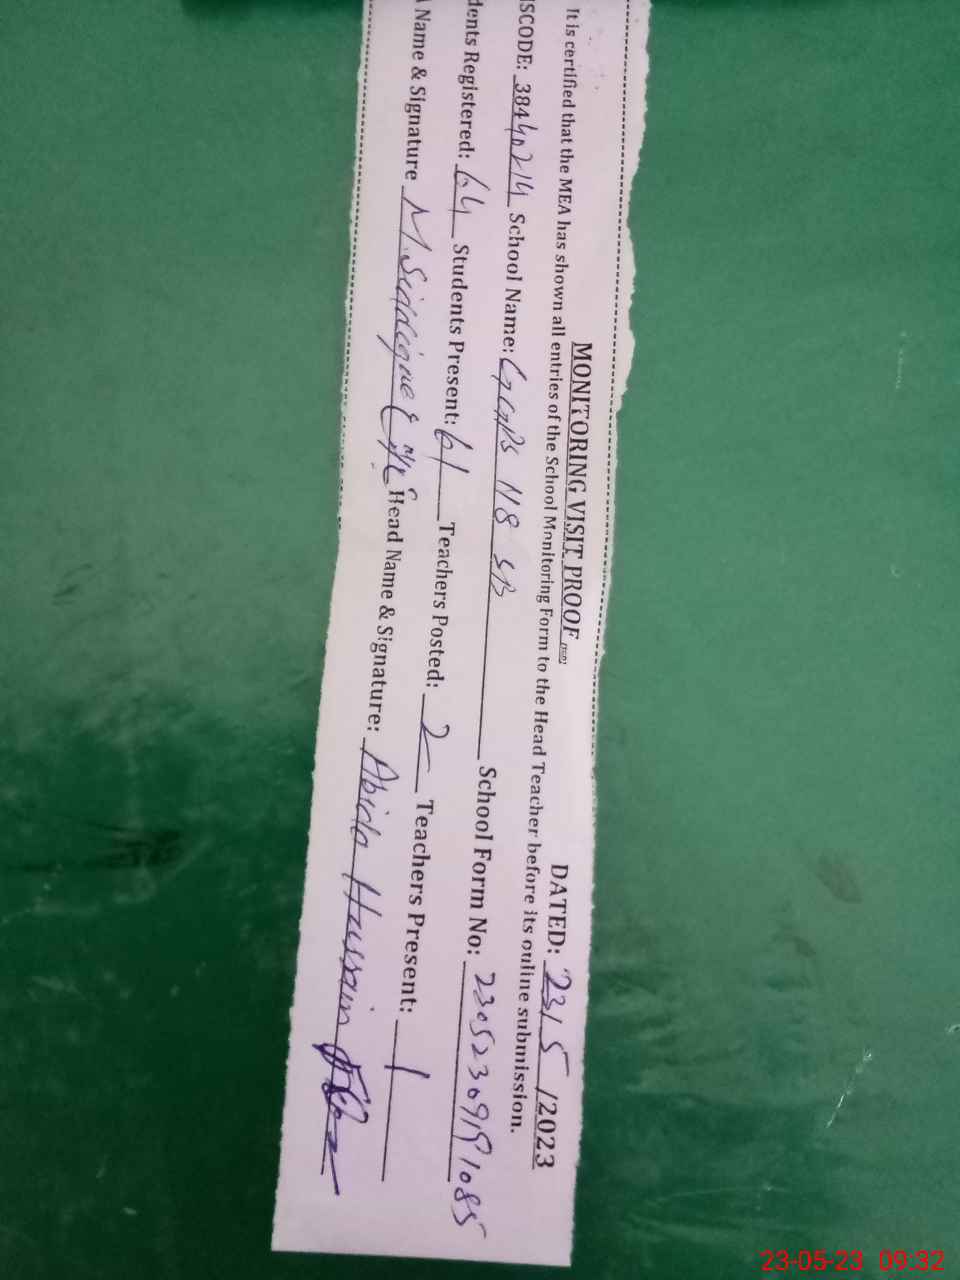 MONITORING VISIT PROOF DATED: 23/5/2023
It is certified that the MEA has shown all entries of the School Monitoring Form to the Head Teacher before its online submission.
ISCODE: 38440214 School Name: GGPS 118 SB School Form No: 23052309191085
dents Registered: 64 Students Present: 61 Teachers Posted: 2 Teachers Present: 1
Name & Signature M. Siddique Head Name & Signature: Abida Hussain
23-05-23 09:32